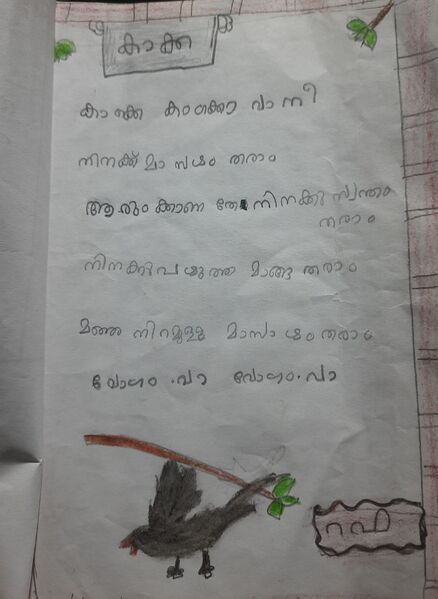 കാക്ക
കാക്കെ കാക്കെ വാ നീ
നിനക്ക് മാമ്പഴം തരാം
ആരും കാണാതേ നിനക്കു സ്വന്തം
തരാം
നിനക്കു പഴുത്ത മാങ്ങ തരാം
മഞ്ഞ നിറമുള്ള മാമ്പഴം തരാം
വേഗം വാ വേഗം വാ